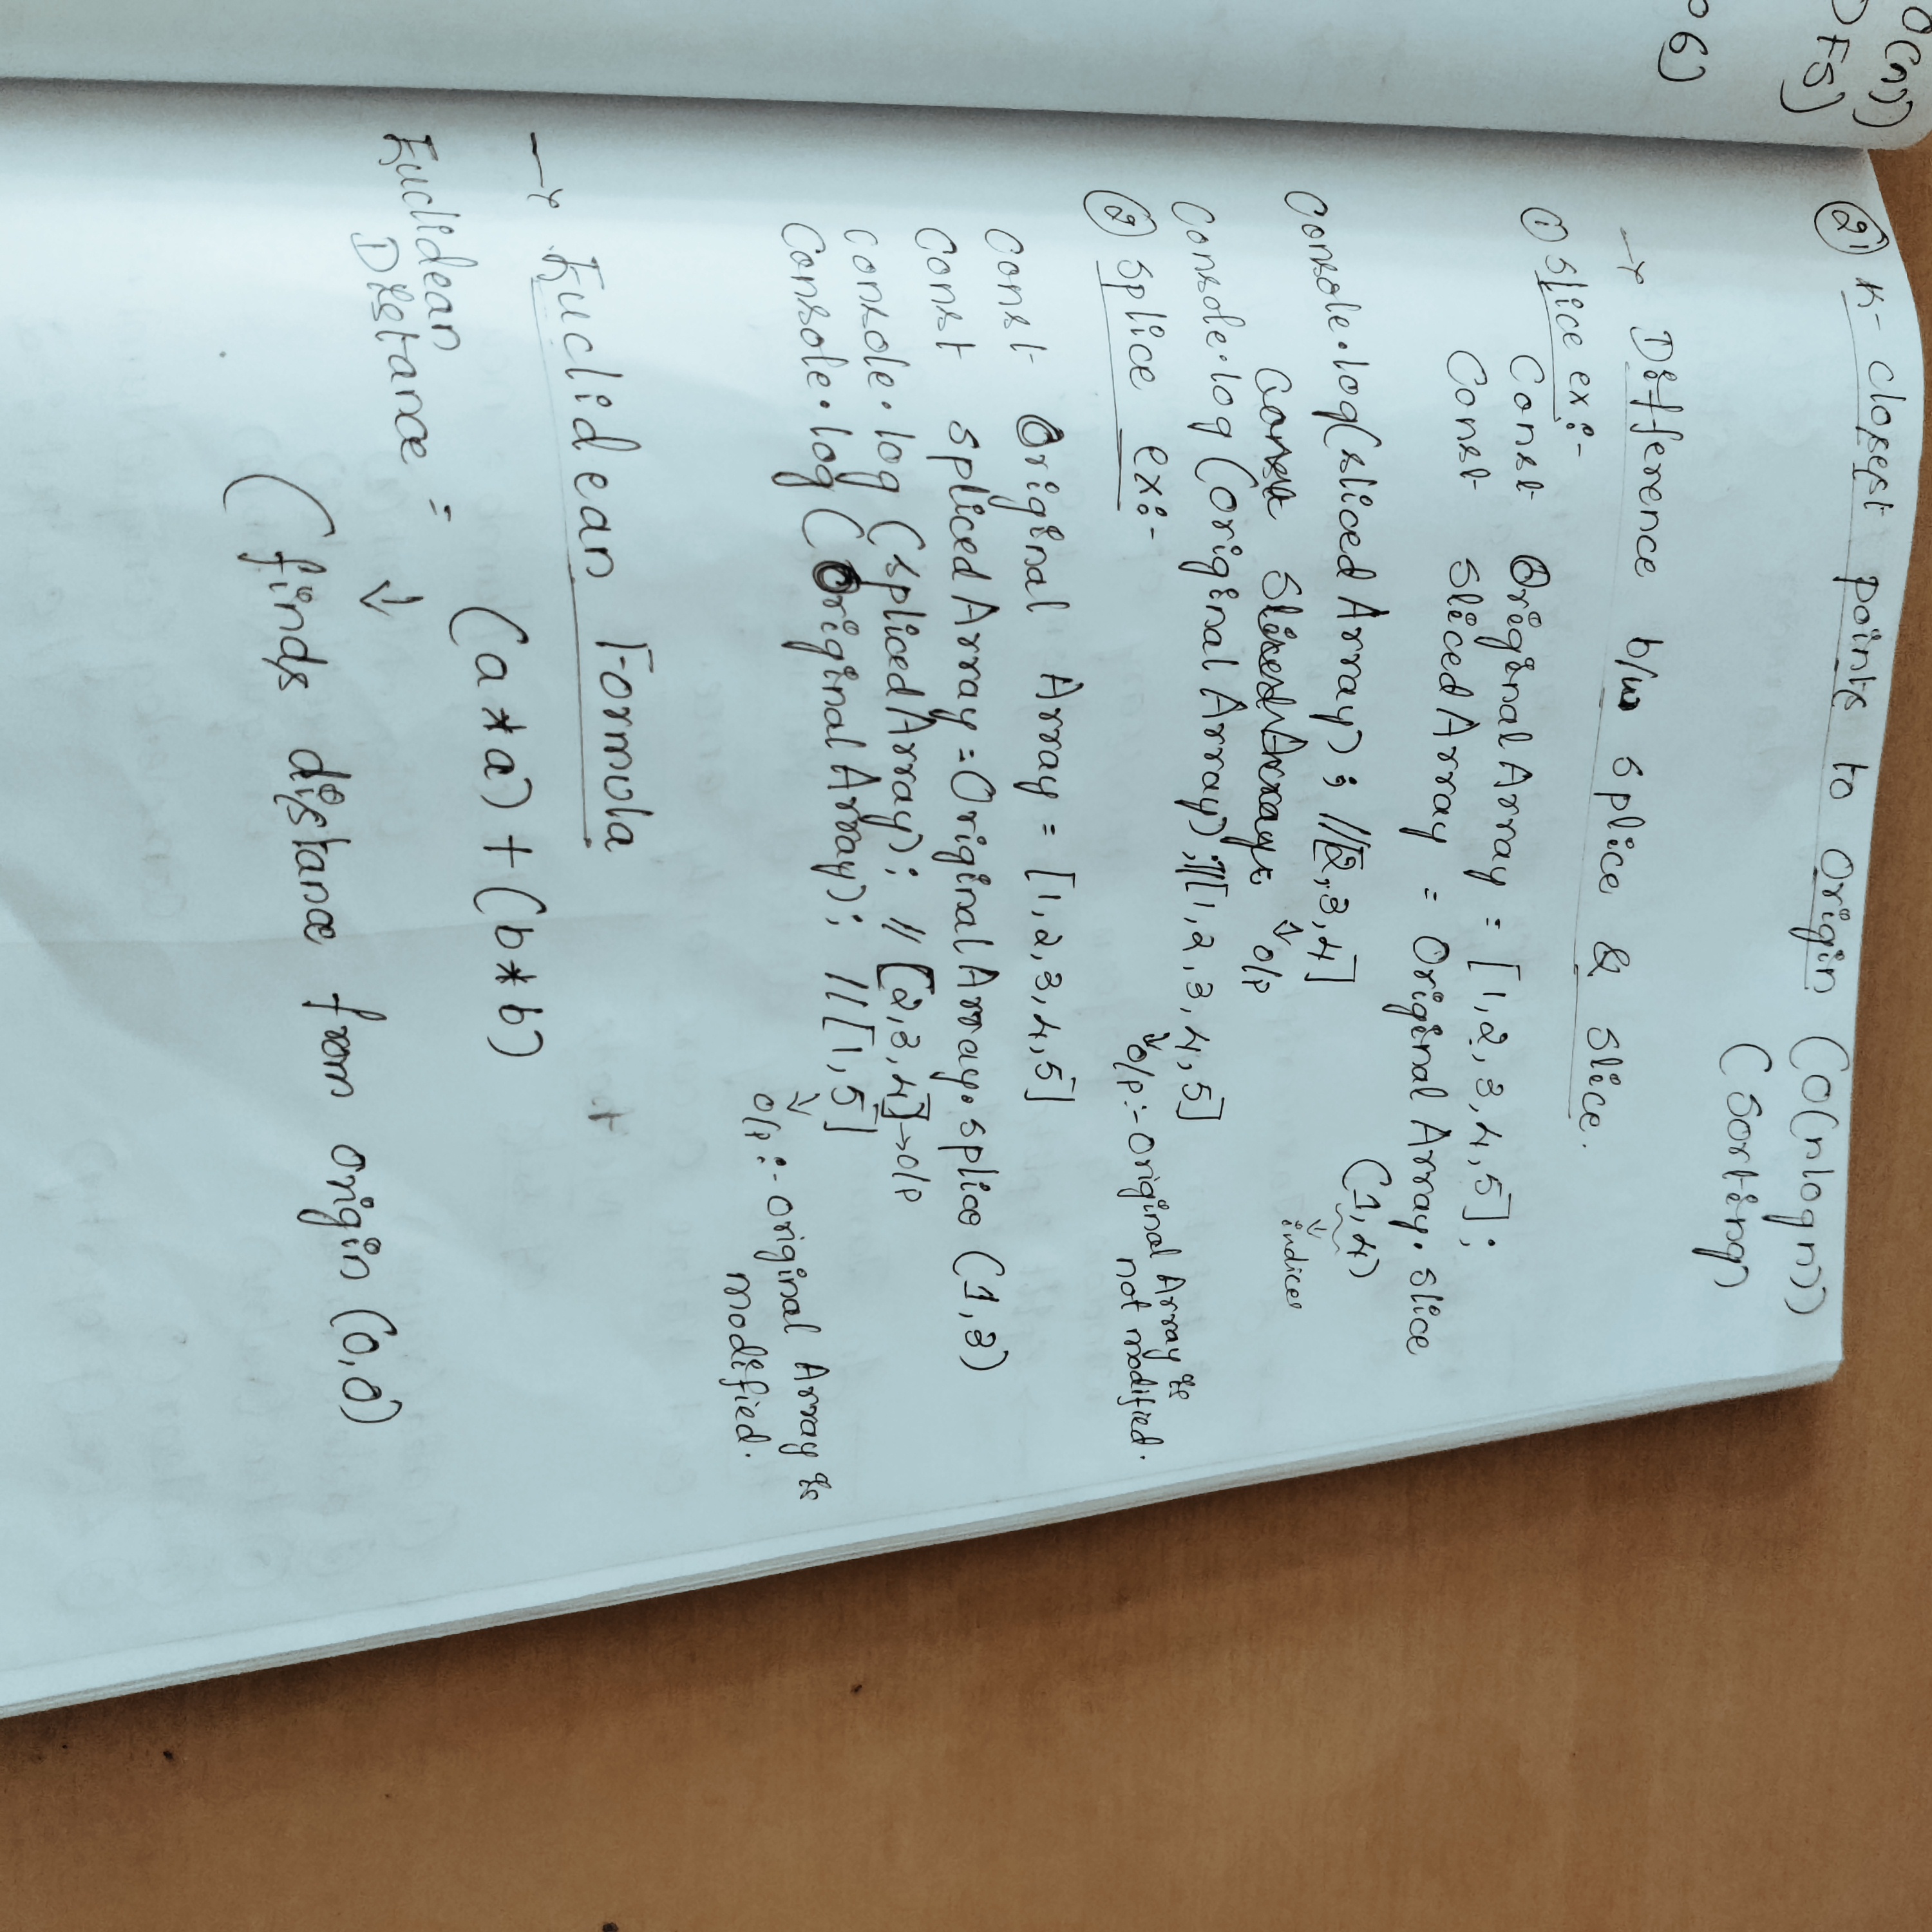 O(n))
DFS)
06)
② K- closest points to Origin (O(nlogn))
(Sorting)
→ Difference b/w splice & slice.
① slice ex:-
Const OriginalArray = [1,2,3,4,5];
Const slicedArray = OriginalArray.slice
(1,4)
indices
Console.log(slicedArray); //[2,3,4]
o/p
Console.log(OriginalArray); //[1,2,3,4,5]
o/p:- Original Array is
not modified.
② splice ex:-
Const Original Array = [1,2,3,4,5]
Const splicedArray = OriginalArray.splice (1,3)
Console.log (splicedArray); // [2,3,4] → o/p
Console.log (OriginalArray); // [1,5]
o/p:- original Array is
modified.
→ Euclidean Formula
Euclidean
Distance = (a*a) + (b*b)
(finds distance from origin (0,0)